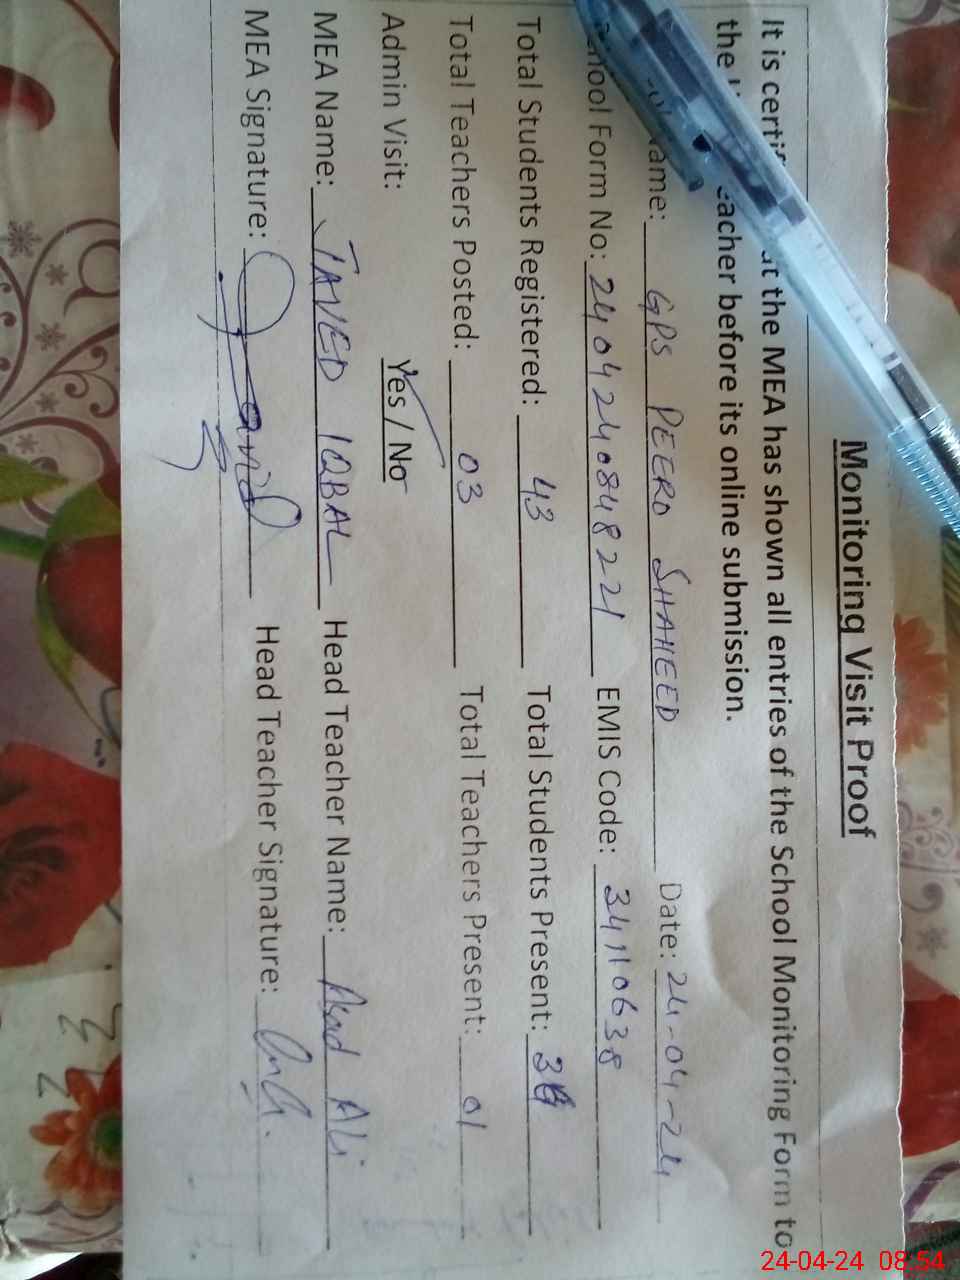 Monitoring Visit Proof
It is certif at the MEA has shown all entries of the School Monitoring Form to
the eacher before its online submission.
ame: GPS PEERO SHAHEED Date: 24-04-24
hool Form No: 2404240848221 EMIS Code: 34110638
Total Students Registered: 43 Total Students Present:
Total Teachers Posted: 03 Total Teachers Present: 01
Admin Visit: Yes / No
MEA Name: JAVED IQBAL Head Teacher Name: Ali
MEA Signature: Javid Head Teacher Signature:
24-04-24 08:54